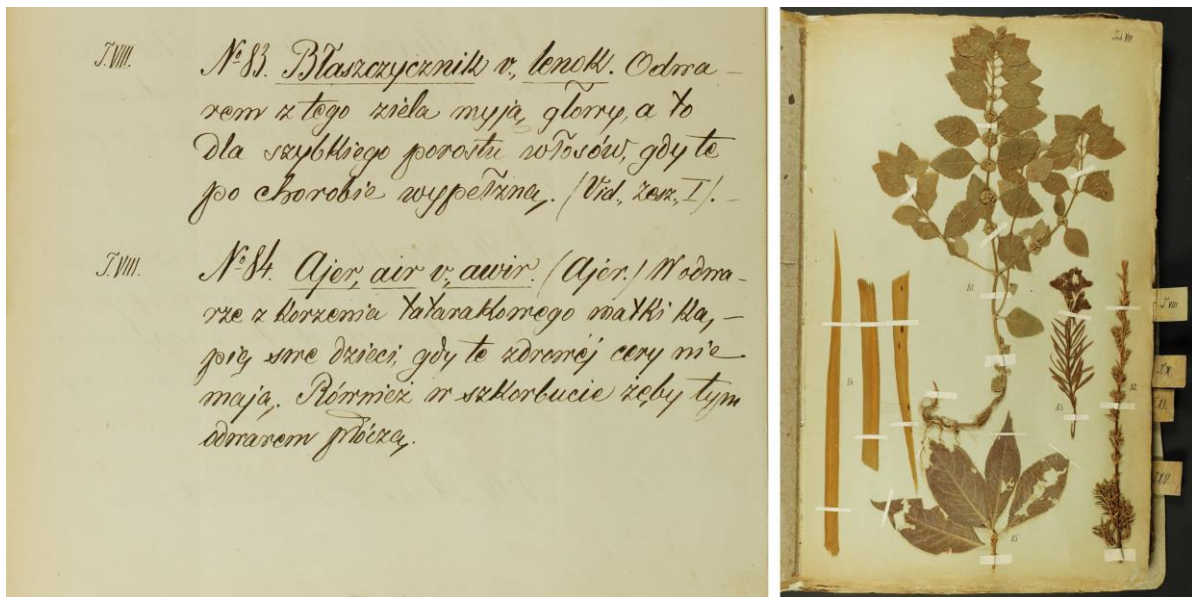 T.VIII. №83. Błaszczycznik v., lenok. Odwa-
rem z tego ziela myją głowy, a to
dla szybkiego porostu włosów, gdy te
po chorobie wypełzną. (Vid., zesz., I). -
T.VIII. №84. Ajer, air v., awir. (Ajér.) W odwa-
rze z korzenia tatarakowego matki ką, -
pią swe dzieci, gdy te zdrowéj cery nie
mają. Również w szkorbucie zęby tym
odwarem płóczą.
Tab VIII
81.
84.
83.
82.
85.
T. VIII
T.X.
T.XI.